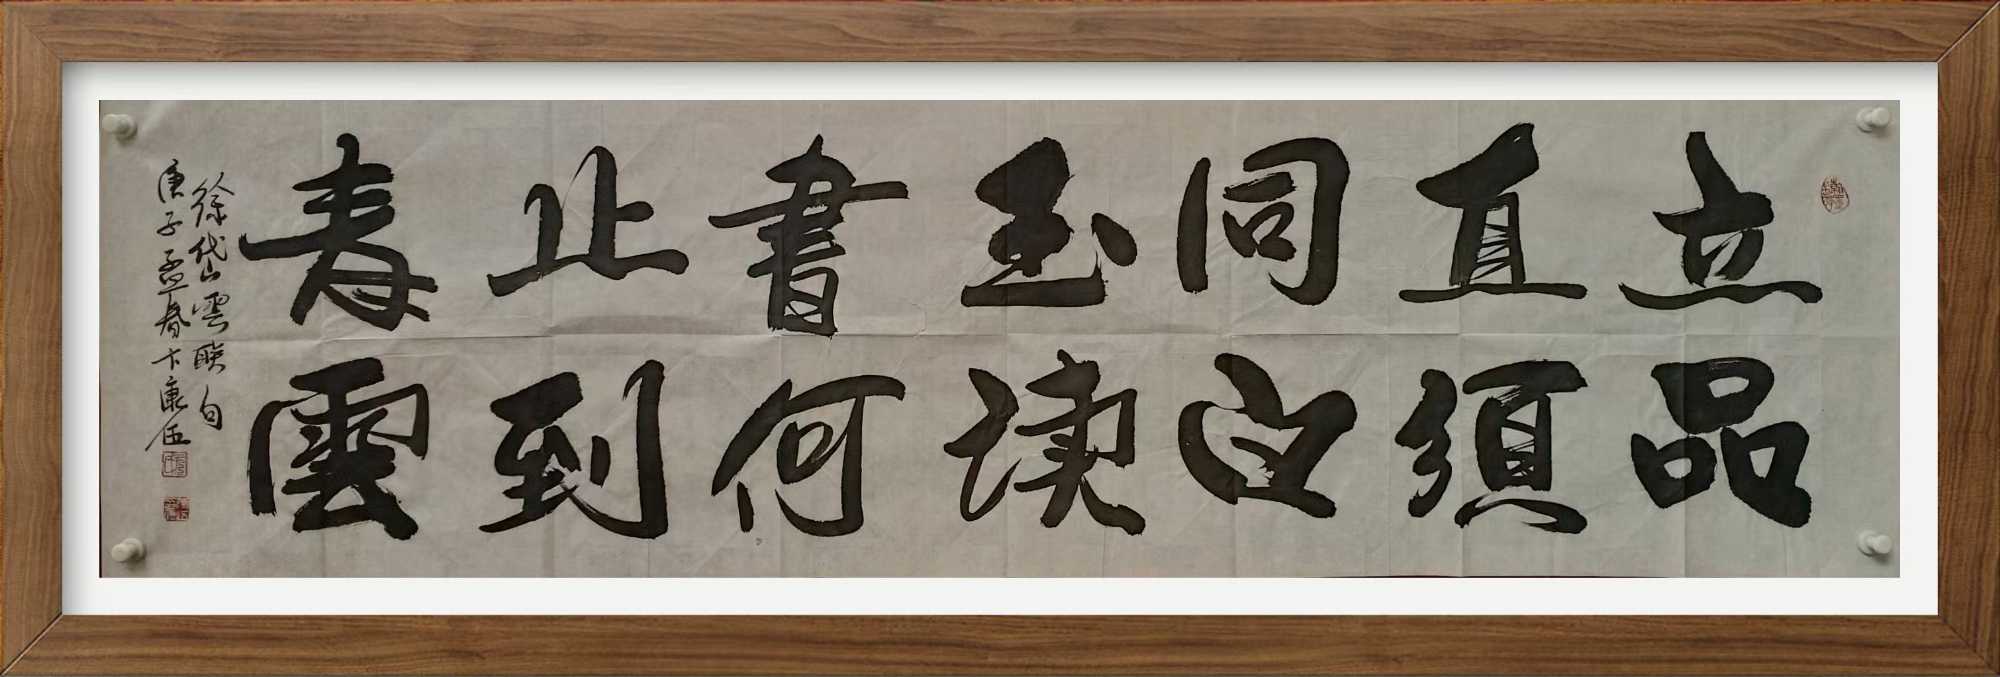 立品
直須
同白
玉讀
書何
止到
青雲
徐岱山雲联句
庚子孟春卞康伍